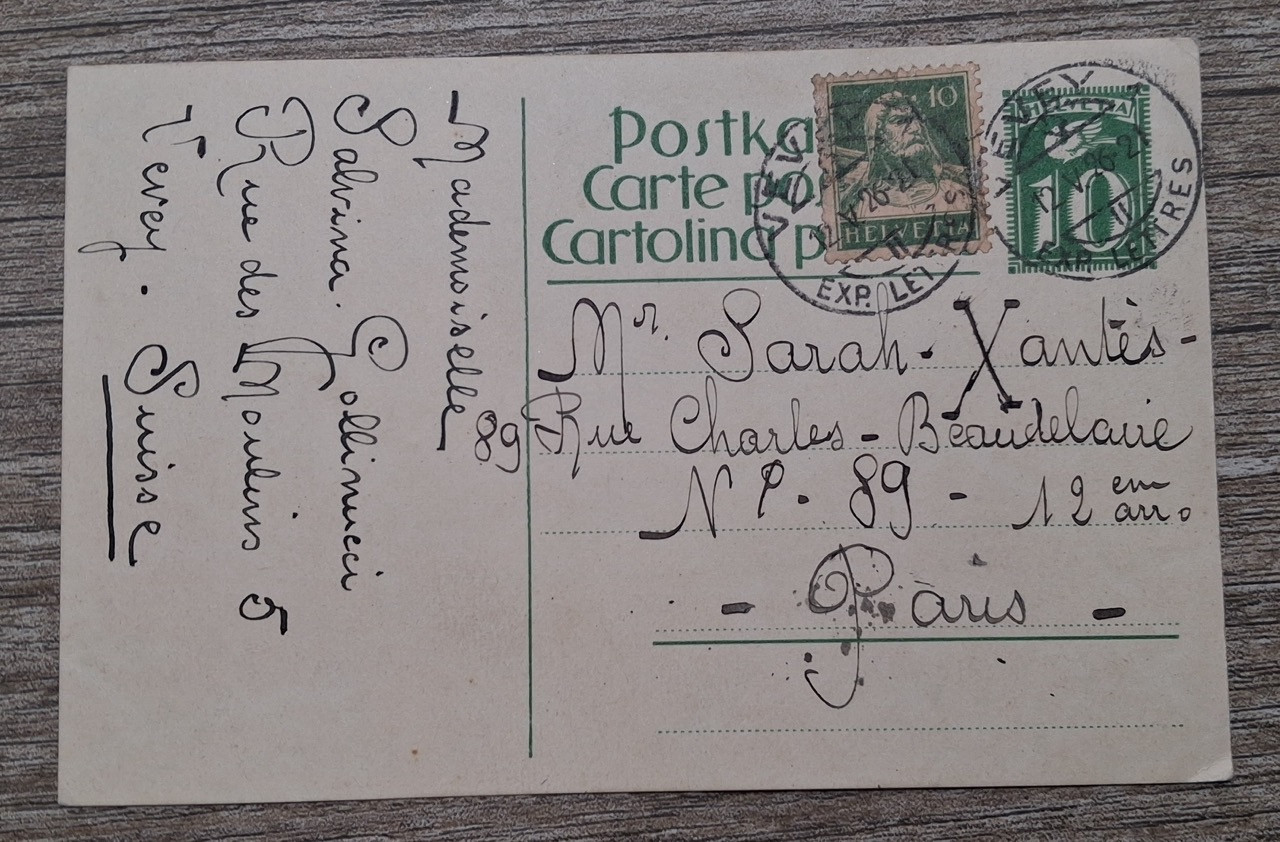 Mademoiselle
Salvina Gollinucci
Rue des Moulins 5
Vevey. Suisse
Postka
Carte pos
Cartolina p
10
HELVETIA
VEVEY
12.V.26-21
II
EXP. LETTRES
HELVETIA
10
VEVEY
12.V.26-21
II
EXP. LETTRES
Mr. Sarah - Xantès -
89 Rue Charles - Beaudelaire
No. 89 - 12 em arr.
- Paris -